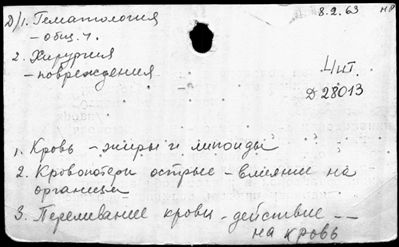 Д/1. Гематология
8.2.63
НР
- общ. ч.
2. Хирургия
- повреждения
4 ит.
Д 28013
1. Кровь - жиры и липоиды
2. Кровопотери острые - влияние на
организм
3. Переливание крови - действие --
на кровь